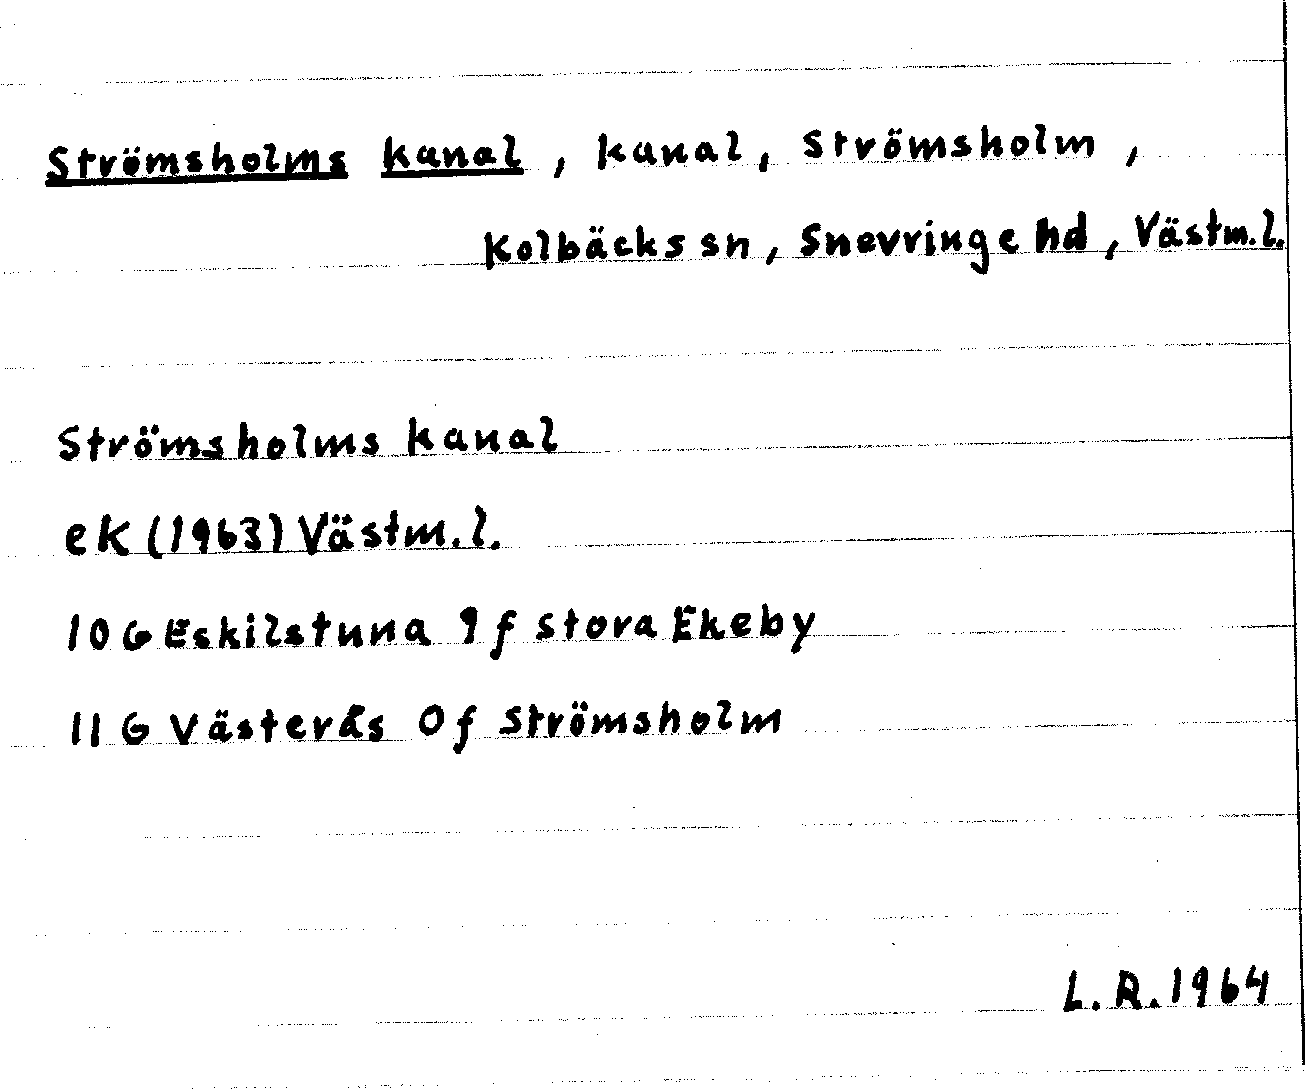 Strömsholms kanal, kanal, Strömsholm,
Kolbäcks sn, Snevringe hd, Västm.l.
Strömsholms kanal
ek (1963) Västm.l.
10 G Eskilstuna 9 f Stora Ekeby
11 G Västerås 0 f Strömsholm
L.A. 1964